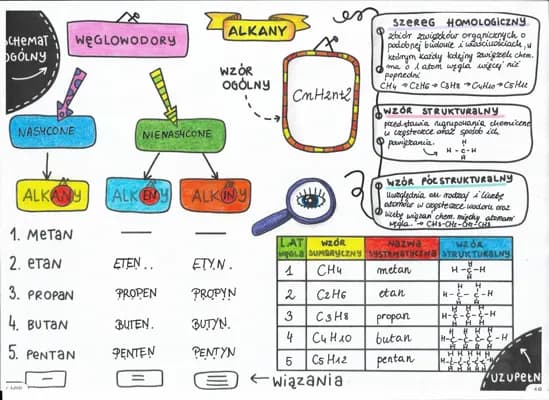 SCHEMAT
OGÓLNY
WĘGLOWODORY
ALKANY
NASYCONE
NIENASYCONE
WZÓR
OGÓLNY
CnH2n+2
ALKANY
ALKENY
ALKINY
SZEREG HOMOLOGICZNY
zbiór związków organicznych o
podobnej budowie i właściwościach, w
którym każdy kolejny związek chem.
ma o 1 atom węgla więcej niż
poprzedni
CH4 → C2H6 → C3H8 → C4H10 → C5H12
WZÓR STRUKTURALNY
przedstawia ugrupowania chemiczne
w cząsteczce oraz sposób ich
powiązania.
H
H-C-H
H
WZÓR PÓŁSTRUKTURALNY
uwzględnia rodzaj i liczbę
atomów w cząsteczce wodoru oraz
liczbę wiązań chem. między atomami
węgla. → CH3-CH2-CH2-CH3
1. METAN — —
2. ETAN ETEN.. ETYN.
3. PROPAN PROPEN PROPYN
4. BUTAN BUTEN. BUTYN.
5. PENTAN PENTEN PENTYN
- = ≡ ← WIĄZANIA
L.AT WĘGLA WZÓR SUMARYCZNY NAZWA SYSTEMATYCZNA WZÓR STRUKTURALNY
1 CH4 metan H-C-H
2 C2H6 etan H-C-C-H
3 C3H8 propan H-C-C-C-H
4 C4H10 butan H-C-C-C-C-H
5 C5H12 pentan
UZUPEŁN